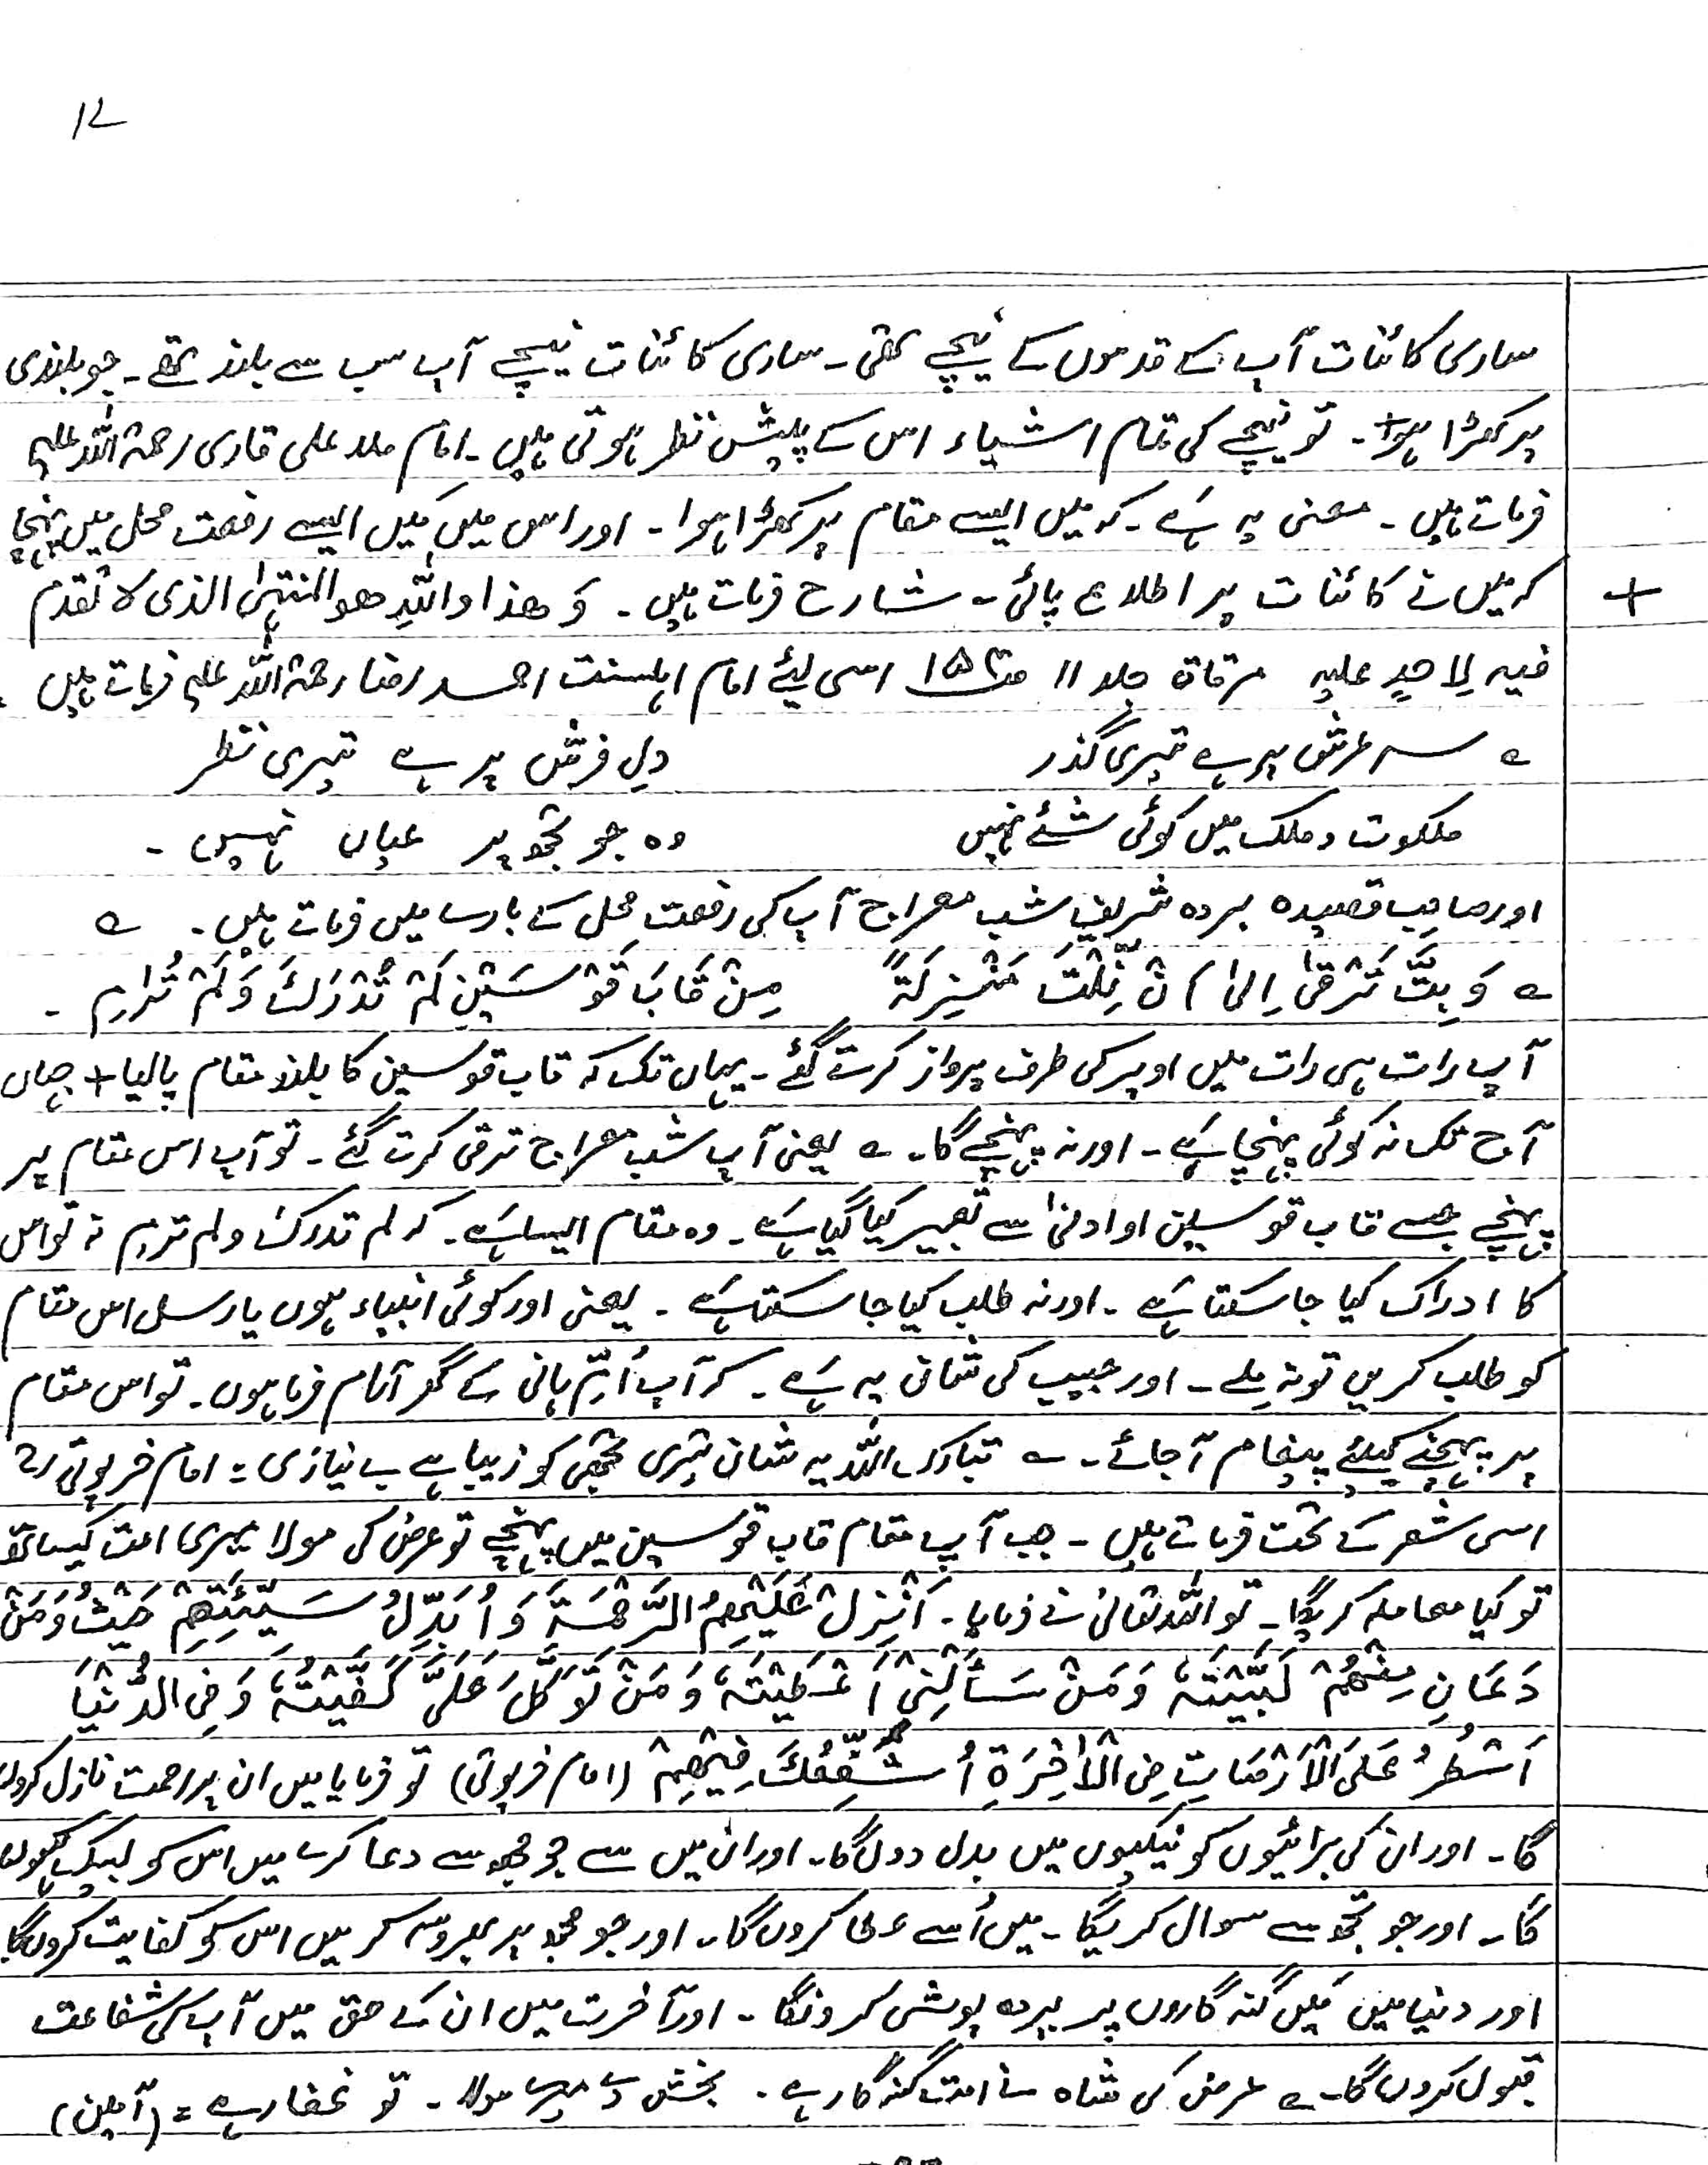 ١٢
ساری کائنات آپ کے قدموں کے نیچے تھی۔ ساری کائنات نیچے آپ سب سے بلند تھے۔ جو بلندی
پر کھڑا ہو+۔ تو نیچے کی تمام اشیاء اس کے پیش نظر ہوتی ہیں۔ امام ملا علی قاری رحمۃ اللہ علیہ
فرماتے ہیں۔ معنی یہ ہَے۔ کہ میں ایسے مقام پر کھڑا ہوا۔ اور اس میں مَیں ایسے رفعت محل میں پہنچا
+ کہ میں نے کائنات پر اطلاع پائی۔ شارح فرماتے ہیں۔ وَ ھذا واللہِ ھو المنتہیٰ الذی لا تقدم
فیہ لِاحدٍ علیہ مرقاۃ جلد ۱۱ اسی لیئے امام اہلسنت احمد رضا رحمۃ اللہ علیہ فرماتے ہیں۔
؎ سرِ عرش پر ہے تیری گذر دلِ فرش پر ہے تیری نظر
ملکوت و ملک میں کوئی شئے نہیں وہ جو تجھ پر عیاں نہیں۔
اور صاحبِ قصیدہ بردہ شریف شب معراج آپ کی رفعت محل کے بارے میں فرماتے ہیں۔ ؎
؎ وَ بِتَّ تَرْقیٰ اِلیٰ اَنْ نِّلْتَ مَنْزِلَۃً مِنْ قَابَ قَوْسَیْنِ لَمْ تُدْرَكْ وَلَمْ تُرَامِ ۔
آپ رات ہی رات میں اوپر کی طرف پرواز کرتے گئے۔ یہاں تک کہ قاب قوسین کا بلند مقام پالیا + جہاں
آج تک نہ کوئی پہنچا ہَے۔ اور نہ پہنچے گا۔ ؎ یعنی آپ شب معراج ترقی کرتے گئے۔ تو آپ اس مقام پر
پہنچے جسے قاب قوسین او ادنیٰ سے تعبیر کیا گیا ہَے۔ وہ مقام ایسا ہَے۔ کہ لم تدرک ولم ترم نہ تو اس
کا ادراک کیا جا سکتا ہَے۔ اور نہ طلب کیا جا سکتا ہَے۔ یعنی اور کوئی انبیاء ہوں یا رسل اس مقام
کو طلب کریں تو نہ مِلے۔ اور حبیب کی شان یہ ہَے۔ کہ آپ اُمِّ ہانی کے گھر آرام فرما ہوں۔ تو اس مقام
پر پہنچنے کیلئے پیغام آجائے۔ ؎ تبارک اللہ یہ شان تیری تجھی کو زیبا ہے بے نیازی = امام خرپوتی رح
اسی شعر کے تحت فرماتے ہیں۔ جب آپ مقام قاب قوسین میں پہنچے تو عرض کی مولا میری امت کیساتھ
تو کیا معاملہ کریگا۔ تو اللہ تعالیٰ نے فرمایا۔ اَنْزِلُ عَلَیْھِمُ الرَّحْمَۃَ وَ اُبَدِّلُ سَیِّئٰتِھِمْ وَمَنْ
دَعَانِ مِنْھُمْ لَبَّیْتُہٗ وَمَنْ سَأَلَنِیْ اَعْطَیْتُہٗ وَمَنْ تَوَکَّلَ عَلَیَّ کَفَیْتُہٗ وَ فِی الدُّنْیَا
اَسْتُرُ عَلَی فِی الْاٰخِرَۃِ اُشَفِّعُکَ فِیْھِمْ (امام خرپوتی) تو فرمایا میں ان پر رحمت نازل کروں
گا۔ اور ان کی برائیوں کو نیکیوں میں بدل دوں گا۔ اور ان میں سے جو مجھ سے دعا کرے میں اس کو لبیک کہوں
گا۔ اور جو مجھ سے سوال کریگا۔ میں اُسے عطا کروں گا۔ اور جو مجھ پر بھروسہ کرے میں اس کو کفایت کروں گا
اور دنیا میں مَیں گنہ گاروں پر پردہ پوشی کرونگا۔ اور آخرت میں ان کے حق میں آپ کی شفاعت
قبول کروں گا۔ ؎ عرض کی شاہ نے امت گنہگار ہے۔ بخش دے میرے مولا۔ تو غفار ہے = (آمین)